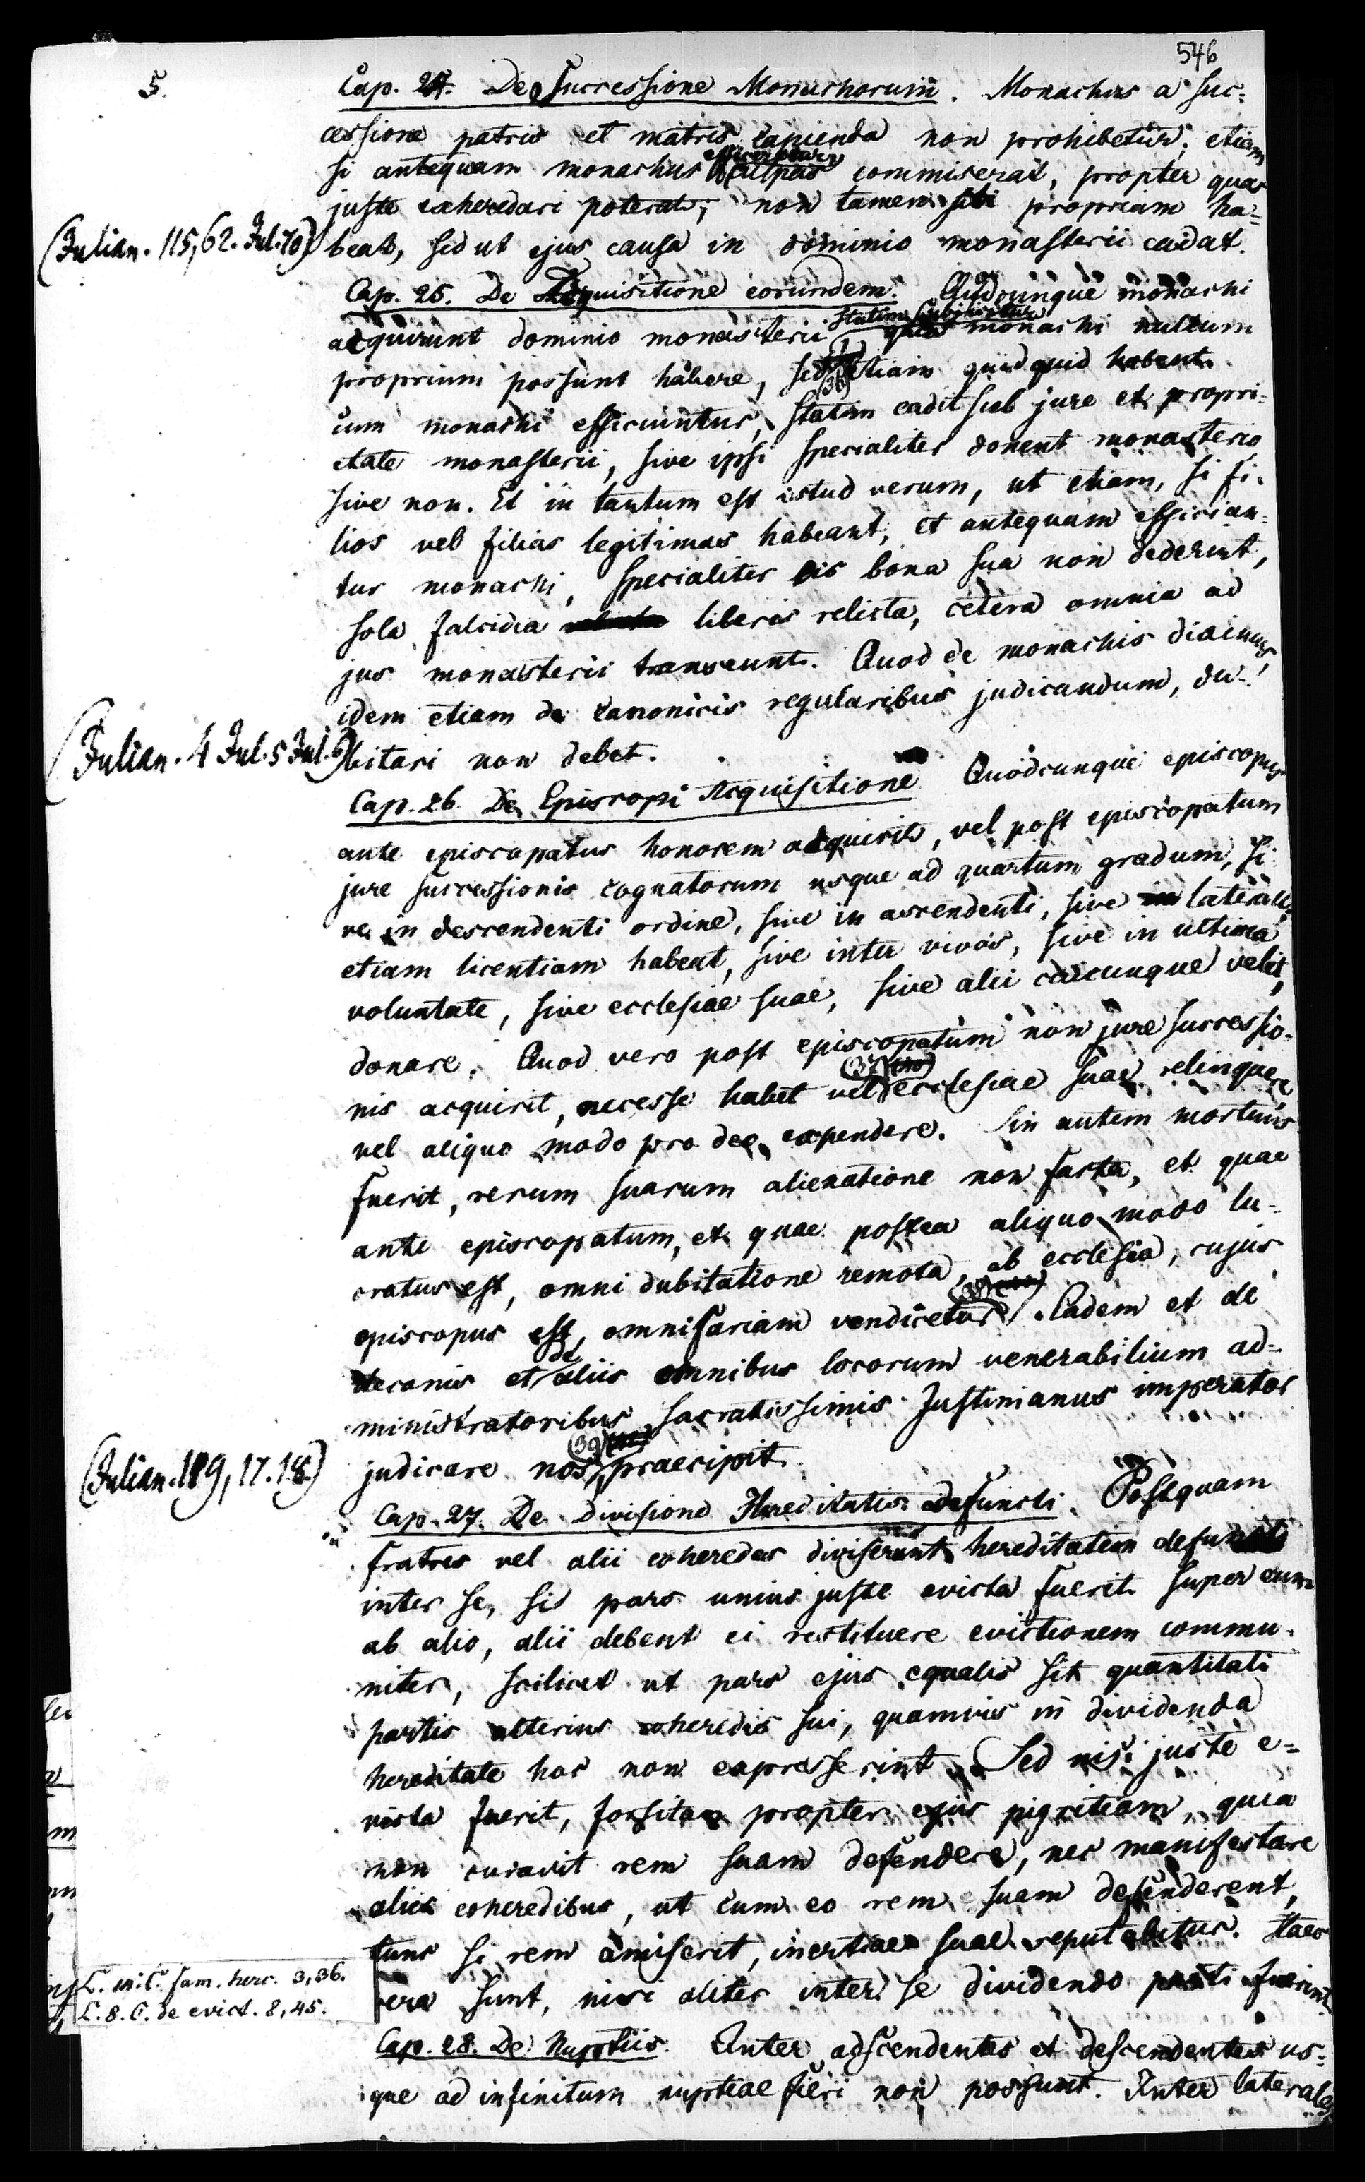 546
5.
Cap. 24. De Successione Monachorum. Monachus a suc-
cessione patris et matris capienda non prohibetur, etiam
si antequam monachus efficeretur culpas commiserat, propter quas
juste exheredari poterat, non tamen sibi proprium ha-
(Julian. 115,62. Jul. 70)
beat, sed ut ejus causa in dominio monasterii cadat.
Cap. 25. De Acquisitione eorundem. Quodcunque monachi
acquirunt dominio monasterii statim subjicitur quia monachi nullum
proprium possunt habere, sed etiam quidquid habent
(36)
cum monachi efficiuntur, statim cadit sub jure et propri-
etate monasterii, sive ipsi specialiter donent monasterio
sive non. Et in tantum est istud verum, ut etiam, si fi-
lios vel filias legitimas habeant, et antequam effician-
tur monachi, specialiter eis bona sua non dederint,
sola falcidia liberis relicta, cetera omnia ad
jus monasterii transeunt. Quod de monachis dicimus,
idem etiam de canonicis regularibus judicandum, du-
(Julian. 4 Jul. 5 Jul. 6)
bitari non debet.
Cap. 26. De Episcopi Acquisitione Quodcunque episcopus
ante episcopatus honorem acquirit, vel post episcopatum
jure successionis cognatorum usque ad quartum gradum, si-
ve in descendenti ordine, sive in ascendenti, sive laterali,
etiam licentiam habeat, sive inter vivos, sive in ultima
voluntate, sive ecclesiae suae, sive alii cuicunque velit,
donare. Quod vero post episcopatum non jure successio-
(37)
nis acquirit, necesse habet vel ecclesiae suae relinquere,
vel aliquo modo pro deo expendere. Sin autem mortuus
fuerit, rerum suarum alienatione non facta, et quae
ante episcopatum, et quae postea aliquo modo lu-
cratus est, omni dubitatione remota, ab ecclesia, cujus
(38)
episcopus est, omnifariam vendicetur. Eadem et de
decanis et de aliis omnibus locorum venerabilium ad-
ministratoribus sacratissimis Justinianus imperator
(39)
(Julian. 119, 17. 18)
judicare nos praecipit.
Cap. 27. De Divisione Hereditatis Defuncti. Postquam
fratres vel alii coheredes diviserunt hereditatem defuncti
inter se, si pars unius juste evicta fuerit super eum
ab alio, alii debent ei restituere evictionem commu-
niter, scilicet ut pars ejus equalis sit quantitati
partis alterius coheredis sui, quamvis in dividenda
hereditate hoc non expresserint. Sed nisi juste e-
victa fuerit, forsitan propter ejus pigritiam, quia
non curavit rem suam defendere, nec manifestare
aliis coheredibus, ut cum eo rem suam defenderent,
tunc si rem amiserit, inertiae suae reputabitur. Haec
L. 14. C. fam. herc. 3,36.
L. 8. C. de evict. 8,45.
vera sunt, nisi aliter inter se dividendo pacti fuerint
Cap. 28. De Nuptiis. Inter adscendentes et descendentes us-
que ad infinitum nuptiae fieri non possunt. Inter laterales